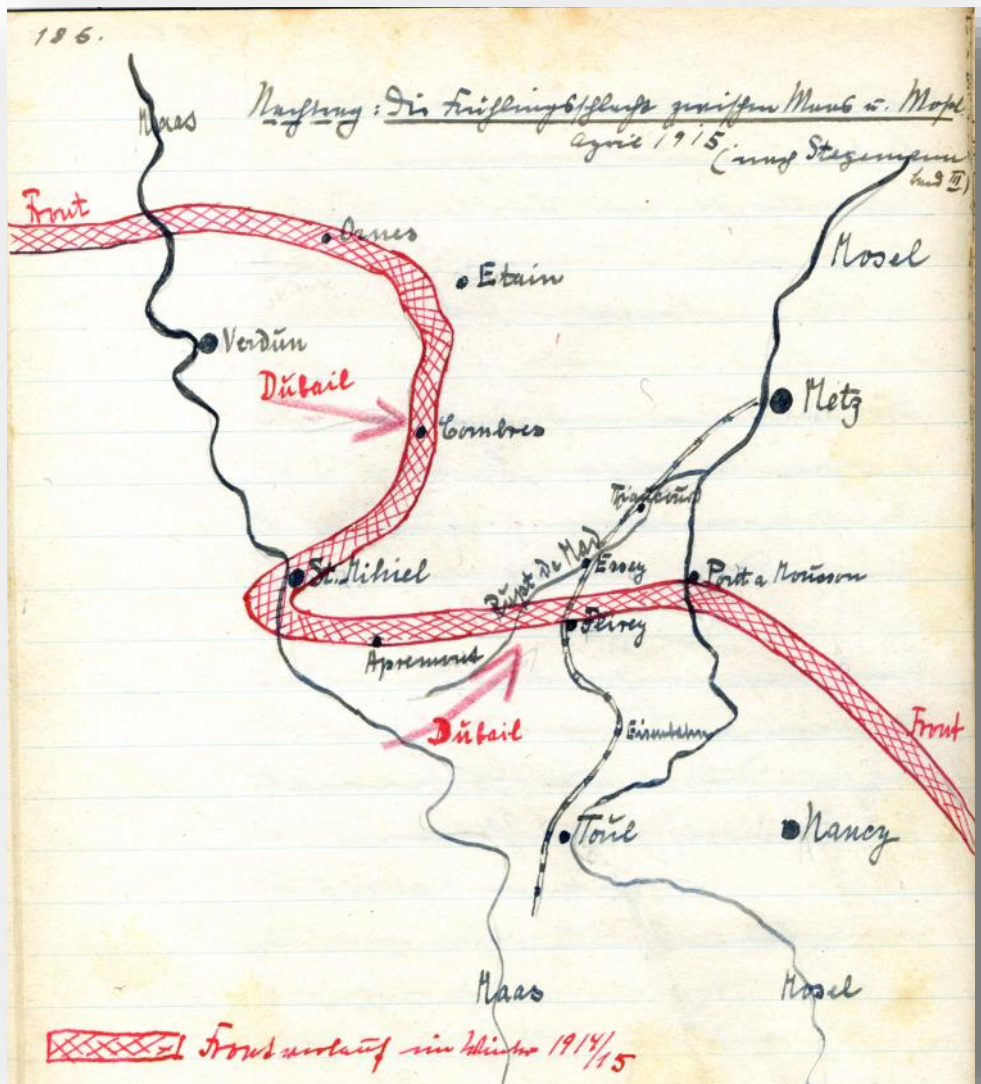 186.
Nachtrag: Die Frühlingsschlacht zwischen Maas u. Mosel
April 1915
(nach Stegemann
Band III)
Maas
Front
Ornes
Etain
Mosel
Verdun
Dubail
Combres
Metz
Thiaucourt
Rupt de Mad
Essey
St. Mihiel
Pont a Mousson
Flirey
Apremont
Dubail
Eisenbahn
Front
Toul
Nancy
Maas
Mosel
Frontverlauf im Winter 1914/15